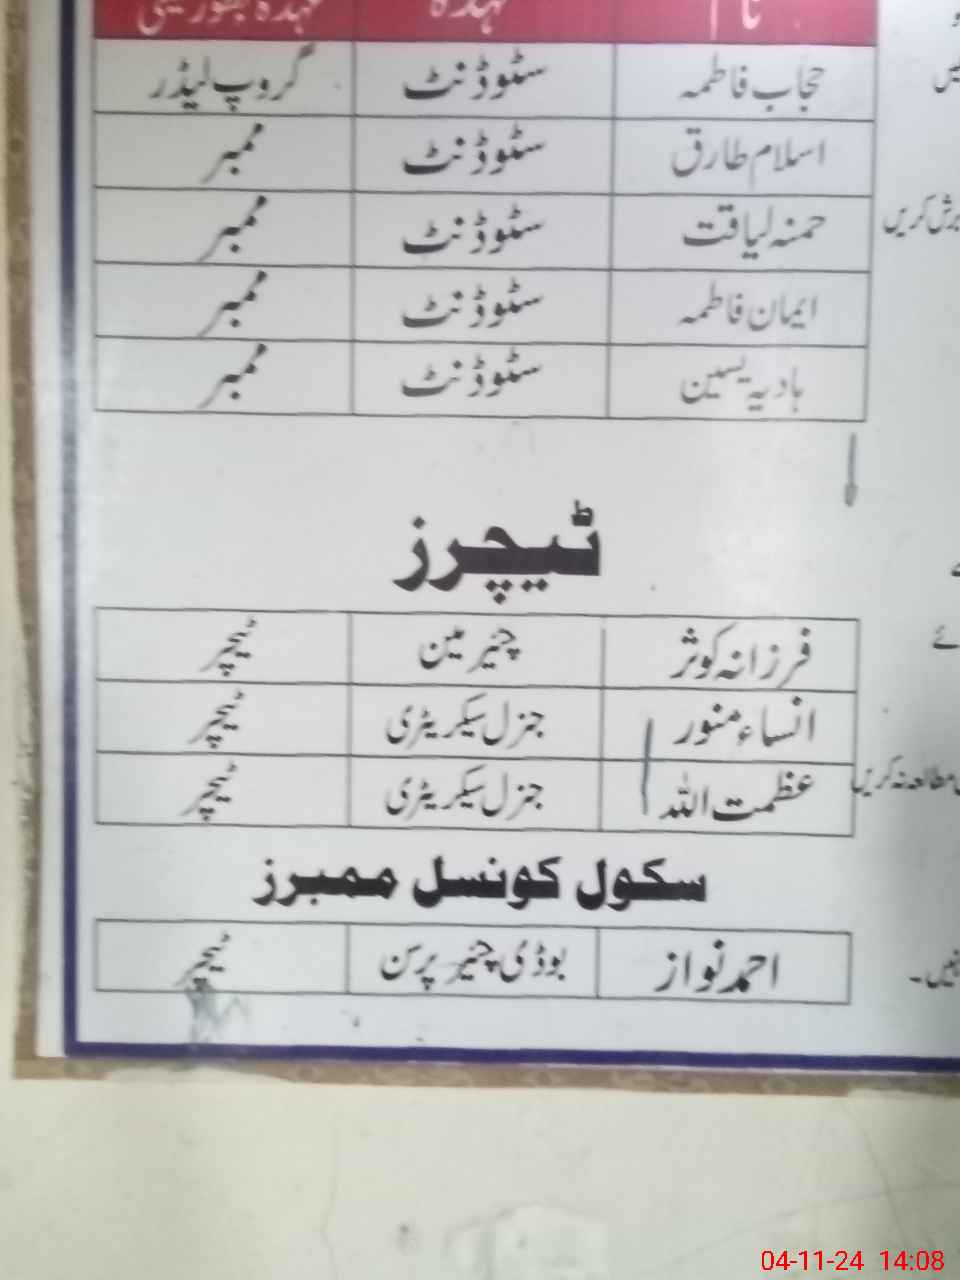 نام عہدہ
حجاب فاطمہ سٹوڈنٹ گروپ لیڈر
اسلام طارق سٹوڈنٹ ممبر
حمنہ لیاقت سٹوڈنٹ ممبر
ایمان فاطمہ سٹوڈنٹ ممبر
ہادیہ یسین سٹوڈنٹ ممبر
ٹیچرز
فرزانہ کوثر چئیرمین ٹیچر
انساء منور جنرل سیکریٹری ٹیچر
عظمت اللہ جنرل سیکریٹری ٹیچر
سکول کونسل ممبرز
احمد نواز بوڈی چئیر پرسن ٹیچر
برش کریں
مطالعہ نہ کریں
نہیں۔
04-11-24 14:08